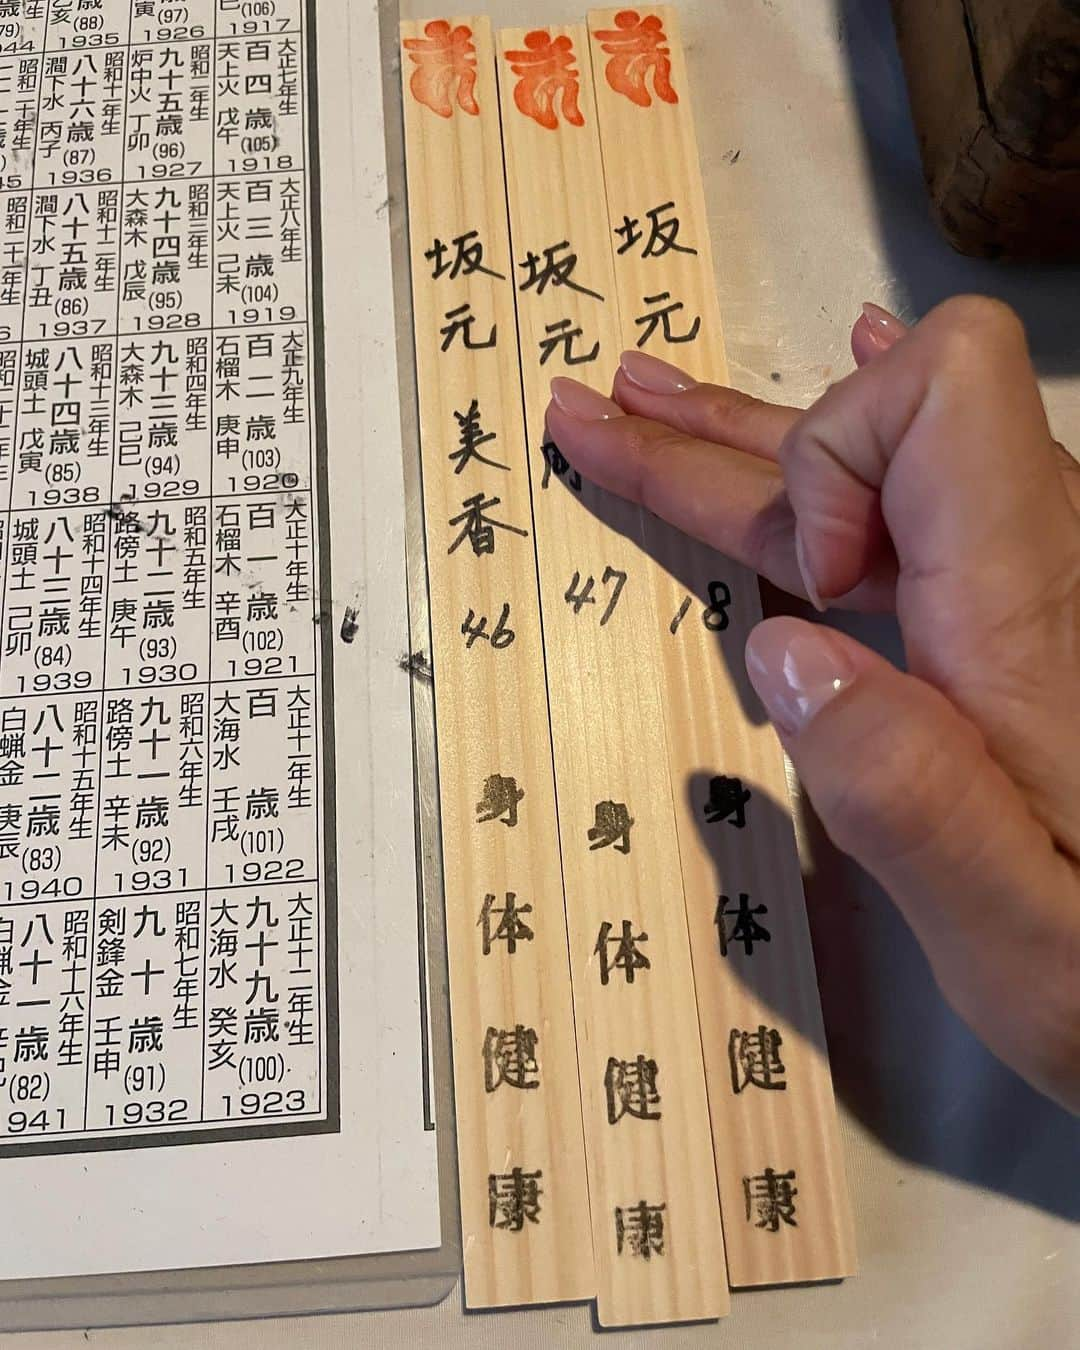 (106)
1917
大正七年生
百四歳(105)
天上火 戊午
1918
大正八年生
百三歳(104)
天上火 己未
1919
大正九年生
百二歳(103)
石榴木 庚申
1920
大正十年生
百一歳(102)
石榴木 辛酉
1921
大正十一年生
百歳(101)
大海水 壬戌
1922
大正十二年生
九十九歳(100)
大海水 癸亥
1923
寅
(97)
1926
昭和二年生
九十五歳(96)
炉中火 丁卯
1927
昭和三年生
九十四歳(95)
大森木 戊辰
1928
昭和四年生
九十三歳(94)
大森木 己巳
1929
昭和五年生
九十二歳(93)
路傍土 庚午
1930
昭和六年生
九十一歳(92)
路傍土 辛未
1931
昭和七年生
九十歳(91)
剣鋒金 壬申
1932
(88)
1935
昭和十一年生
八十六歳(87)
澗下水 丙子
1936
昭和十二年生
八十五歳(86)
澗下水 丁丑
1937
昭和十三年生
八十四歳(85)
城頭土 戊寅
1938
昭和十四年生
八十三歳(84)
城頭土 己卯
1939
昭和十五年生
八十二歳(83)
白蝋金 庚辰
1940
昭和十六年生
八十一歳(82)
941
坂元 18 身体健康
坂元 47 身体健康
坂元美香 46 身体健康